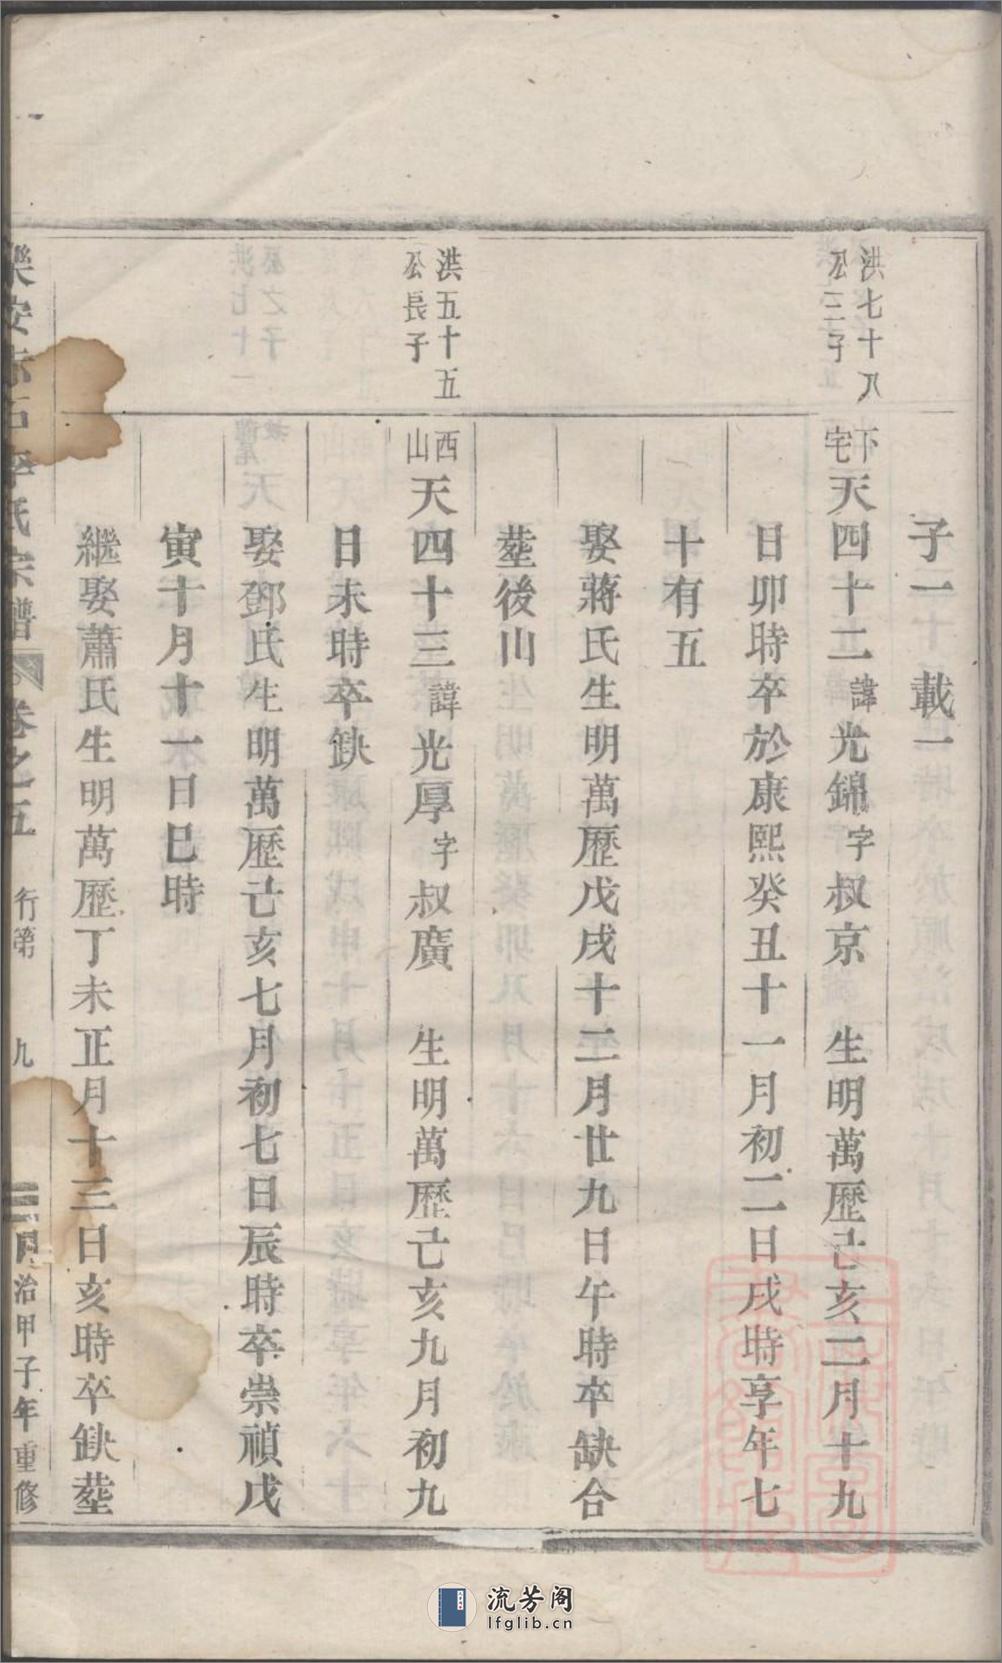 子一　載一
洪七十八
公三子
下
宅
天四十二諱光錦字叔京　生明萬歷己亥二月十九
日卯時卒於康熙癸丑十一月初二日戌時享年七
十有五
娶蔣氏生明萬歷戊戌十二月廿九日午時卒缺合
塟後山
洪五十五
公長子
西
山
天四十三諱光厚字叔廣　生明萬歷己亥九月初九
日未時卒缺
娶鄧氏生明萬歷己亥七月初七日辰時卒崇禎戊
寅十月十一日巳時
繼娶蕭氏生明萬歷丁未正月十三日亥時卒缺塟
樂安　氏宗譜　卷之五　行第　九　治甲子年重修
流芳阁
lfglib.cn